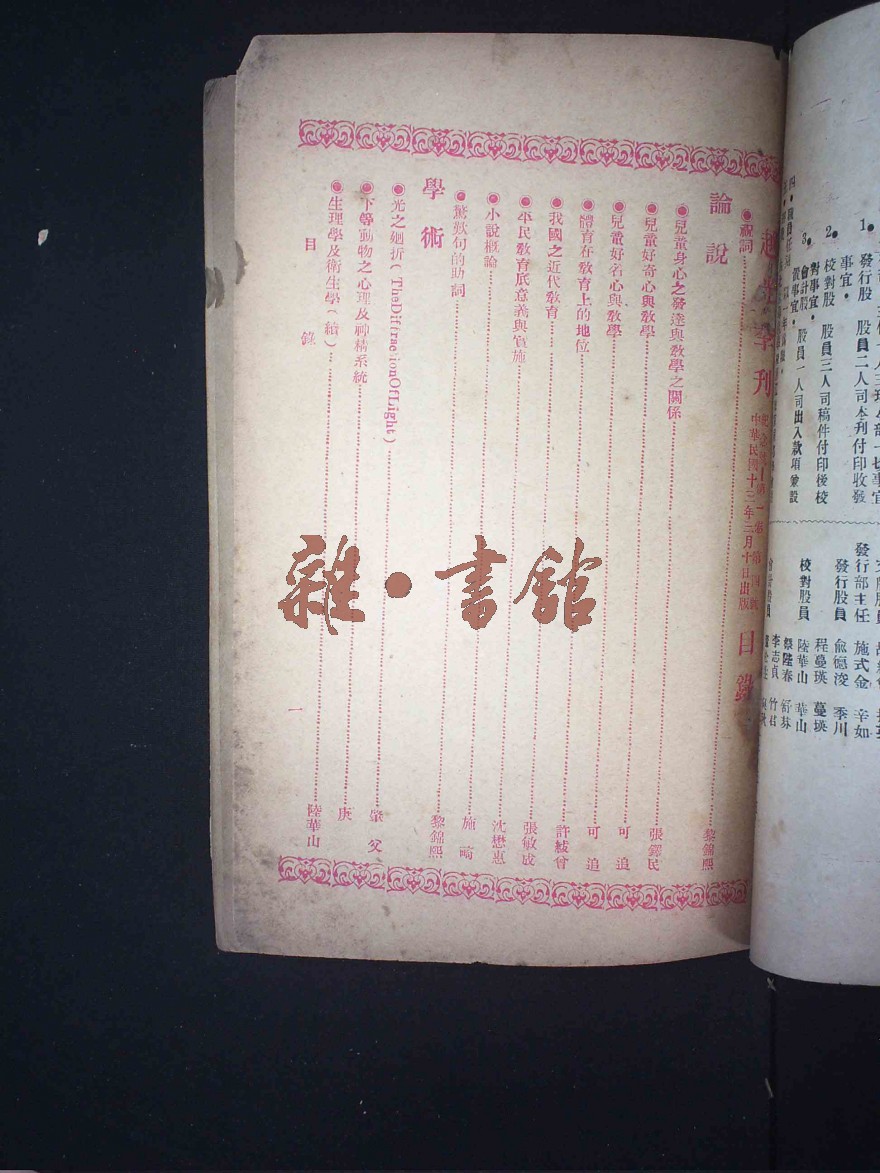 1. 發行股 股員二人司本刊付印收發
事宜.
2. 校對股 股員三人司稿件付印後校
對事宜.
3. 會計股 股員一人司出入款項兼設
發行部主任 施式金 辛如
發行股員 兪德浚 季川
程蔓瑛 蔓瑛
校對股員 陸華山 華山
蔡陞春 舒芬
李志貞 竹君
季刊
中華民國十三年三月十日出版
目錄
◉祝詞 黎錦熙
論說
◉兒童身心之發達與教學之關係 張鐸民
◉兒童好奇心與教學 可追
◉兒童好名心與教學 可追
◉體育在教育上的地位 許紱曾
◉我國之近代教育 張敏成
◉平民教育底意義與實施 沈懋惠
◉小說概論 施崎
◉驚歎句的助詞 黎錦熙
學術
◉光之廻折(TheDiffractionOfLight) 肇父
◉下等動物之心理及神精系統 庚
◉生理學及衛生學(續) 陸華山
目錄
一
雜·書館